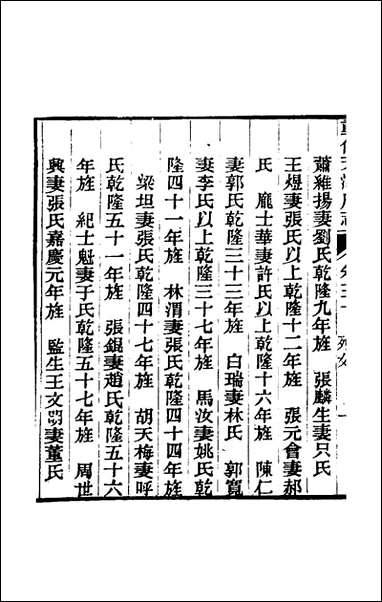 蕭維揚妻劉氏乾隆九年旌　張麟生妻只氏
王煜妻張氏以上乾隆十二年旌　張元會妻郝
氏　龐士華妻許氏以上乾隆十六年旌　陳仁
妻郭氏乾隆三十三年旌　白瑞妻林氏　郭寬
妻李氏以上乾隆三十七年旌　馬汝妻姚氏乾
隆四十一年旌　林渭妻張氏乾隆四十四年旌
梁坦妻張氏乾隆四十七年旌　胡天梅妻呼
氏乾隆五十一年旌　張錕妻趙氏乾隆五十六
年旌　紀士魁妻于氏乾隆五十七年旌　周世
興妻張氏嘉慶元年旌　監生王文明妻董氏